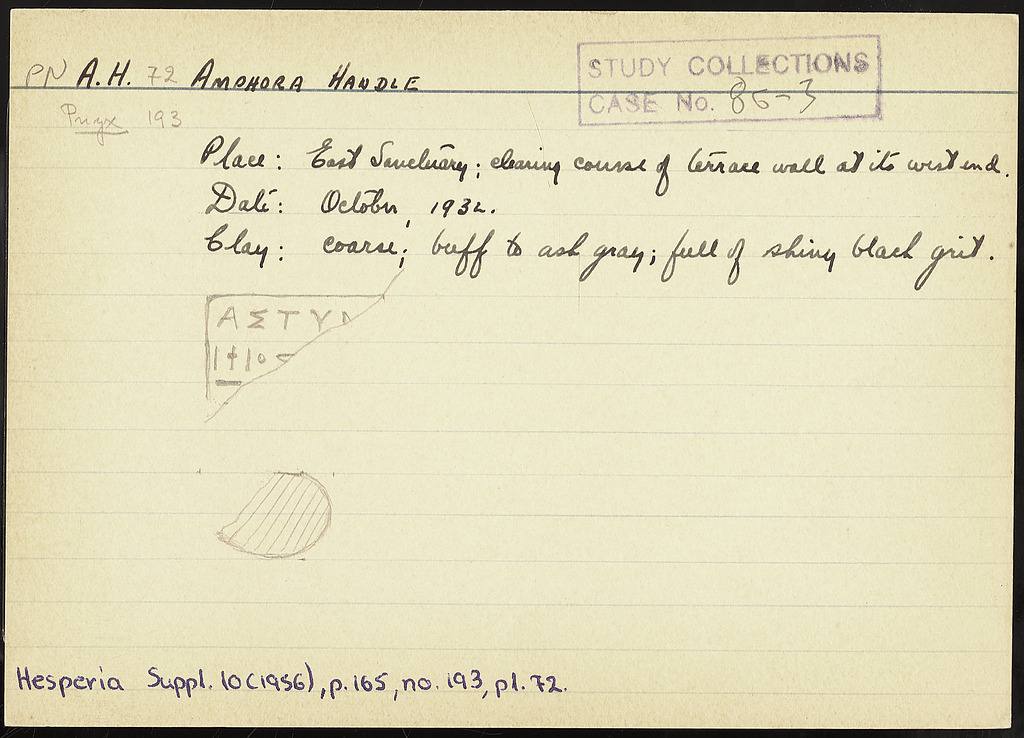 PN A.H. 72 AMPHORA HANDLE
STUDY COLLECTIONS
CASE No. 86-3
Pnyx 193
Place: East Sanctuary; clearing course of terrace wall at its west end.
Date: October, 1932.
Clay: coarse; buff to ash gray; full of shiny black grit.
ΑΣΤΥ
Hesperia Suppl. 10 (1956), p. 165, no. 193, pl. 72.